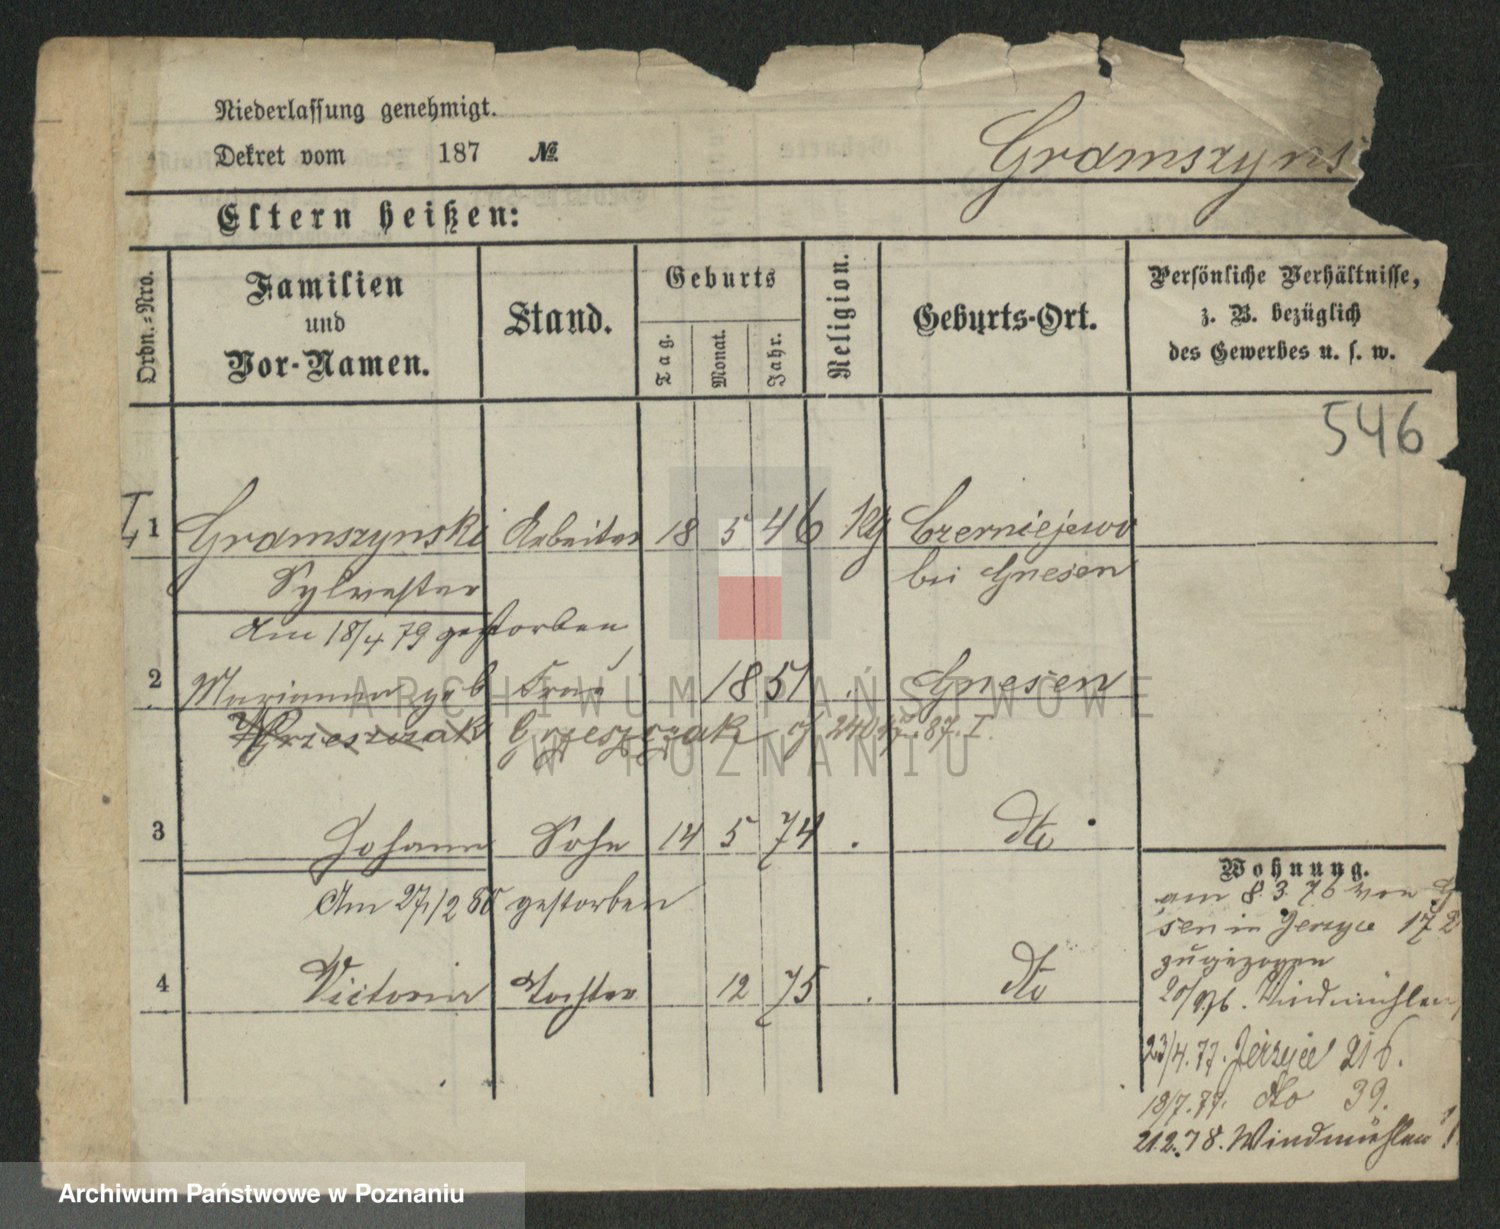 Niederlassung genehmigt.
Dekret vom 187 №
Gramszyns
Eltern heißen:
Ordn.-Nro.
Familien und Vor-Namen.
Stand.
Geburts
Tag. Monat. Jahr.
Religion.
Geburts-Ort.
Persönliche Verhältnisse,
z. B. bezüglich
des Gewerbes u. s. w.
546
I 1 Gramszynski Arbeiter 18 5 46 Czerniejewo
Sylvester bei Gnesen
Am 18/4 79 gestorben
2 Marianna geb Frau 1851 . Gnesen
Grzeszczak Grzeszczak 87. I.
3 Johann Sohn 14 5 74 . dto
Am 27/12 80 gestorben
4 Victoria Tochter 12 75 . dto
Wohnung.
am 8.3.76 von
sen in Jerzyce 17
zugezogen
Windmühlen
23/4.77. Jerzyce 216.
18/7.77. dto 39.
21.2.78. Windmühlen
ARCHIWUM PAŃSTWOWE
W POZNANIU
Archiwum Państwowe w Poznaniu